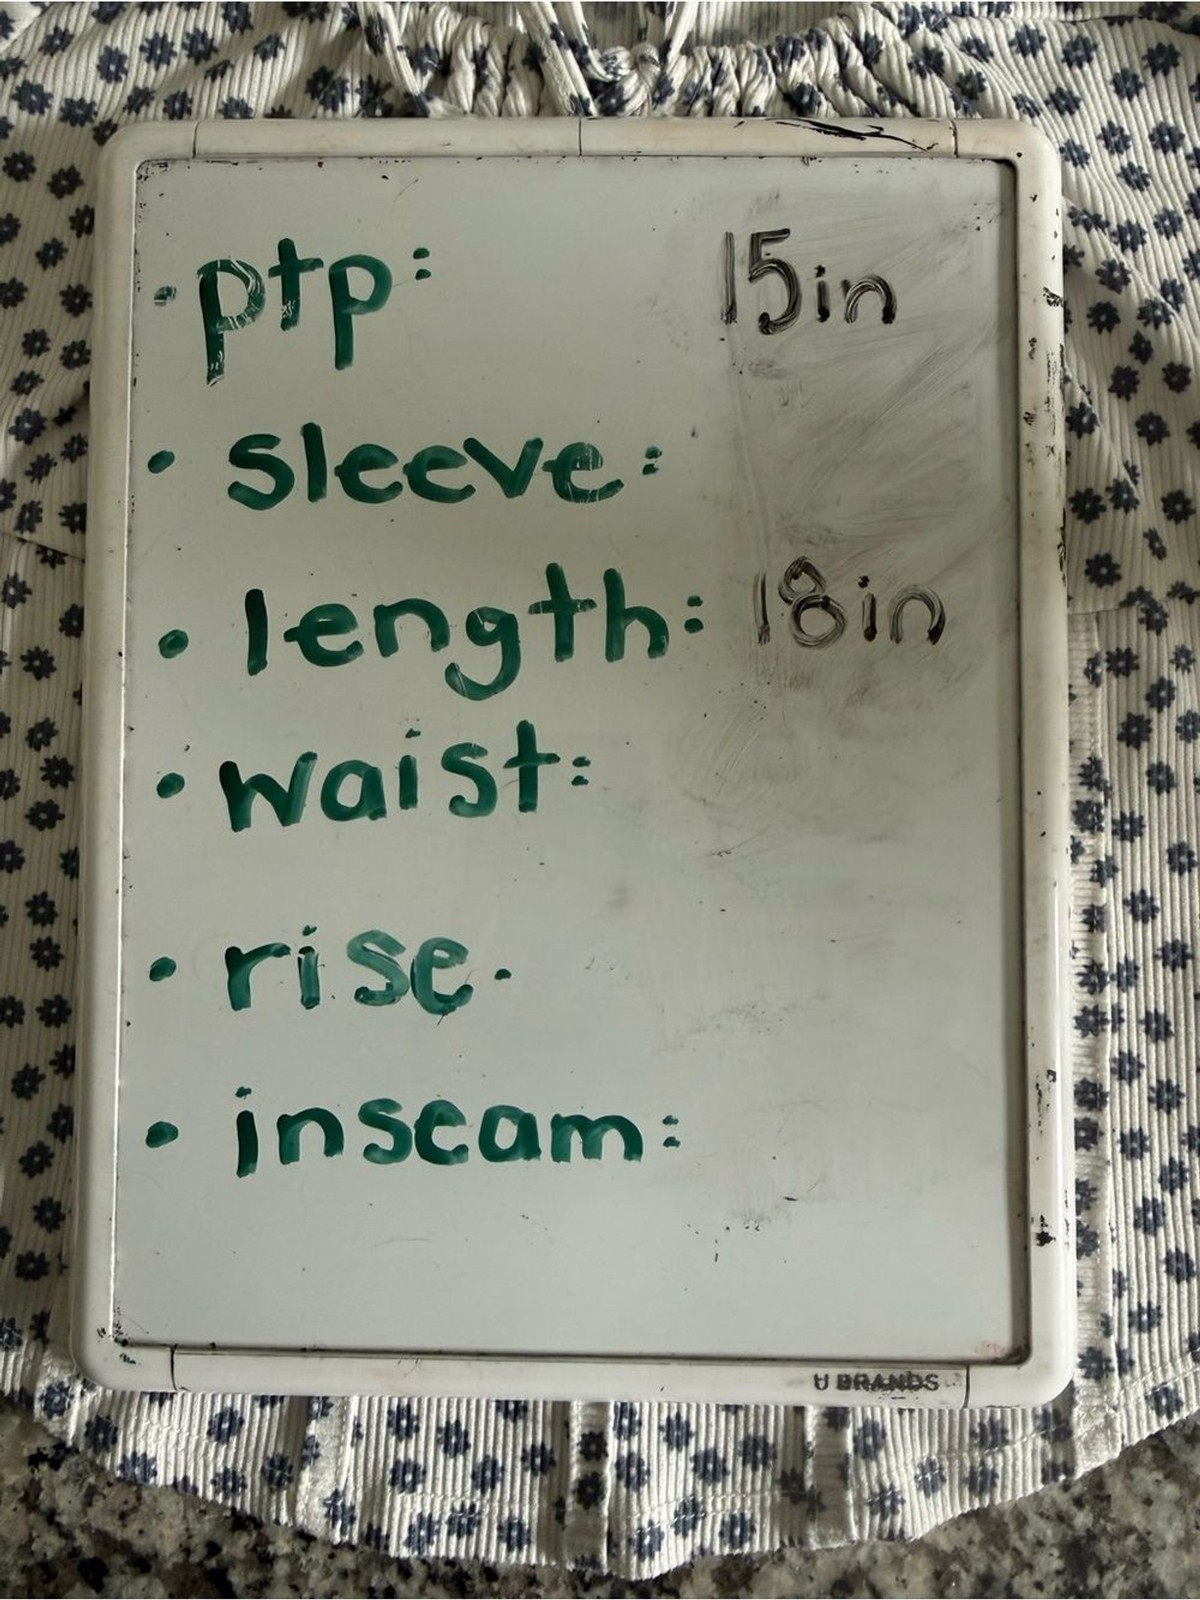 · ptp: 15in
· sleeve:
· length: 18in
· waist:
· rise.
· inseam:
U BRANDS